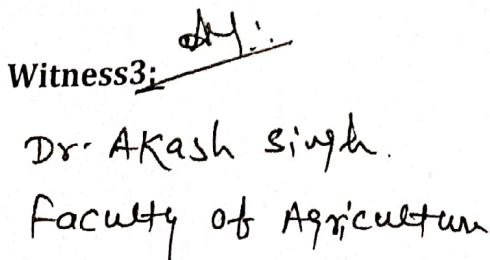 Witness3:
Dr. Akash Singh.
Faculty of Agriculture